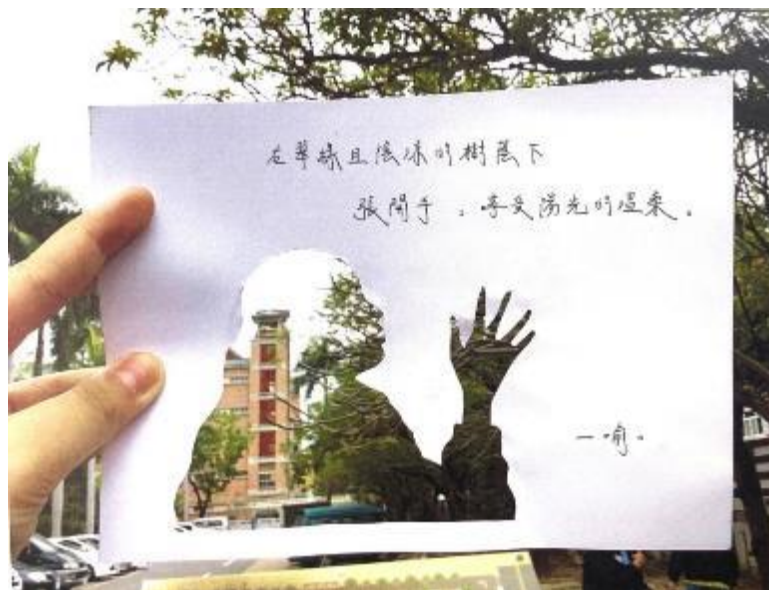 在翠綠且陰涼的樹蔭下
張開手，享受陽光的溫柔。
一喻。